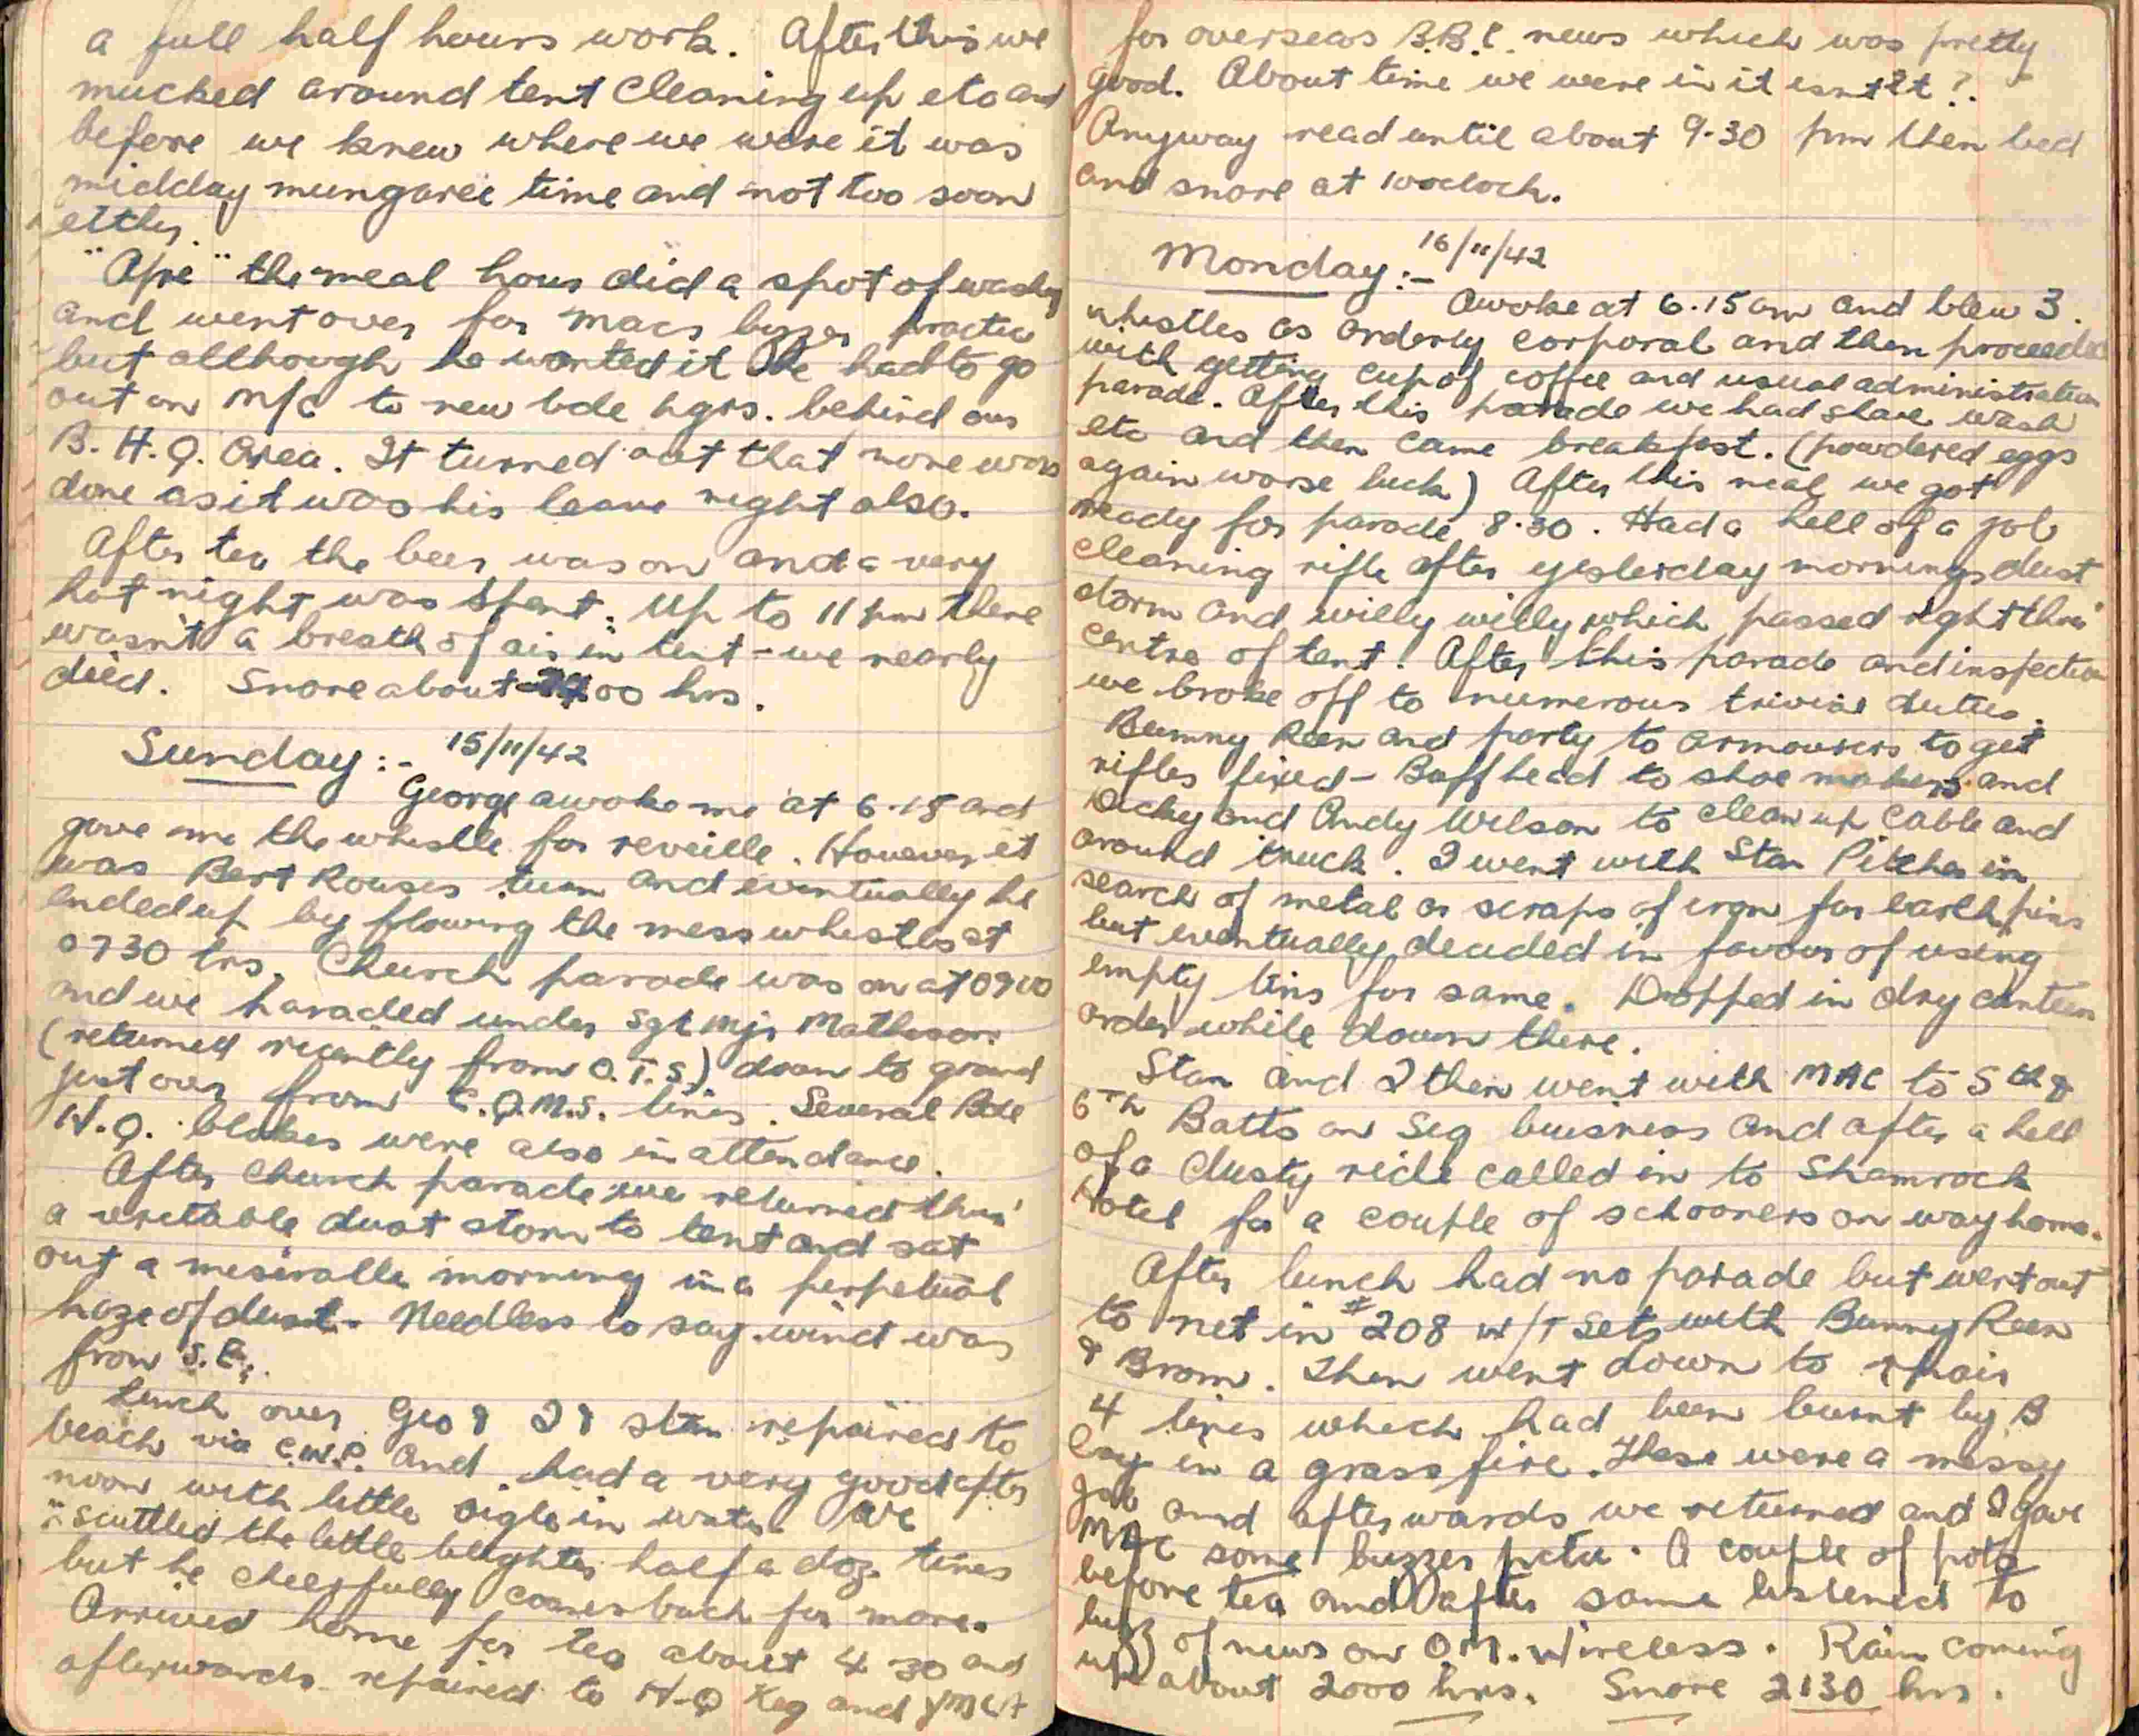 a full half hours work. After this we
mucked around tent cleaning up etc and
before we knew where we were it was
midday mungaree time and not too soon
either.
"Apre" the meal hour did a spot of washing
and went over for Macs buzzer practice
but although he wanted it he had to go
out on M/C to new bde hqrs. behind our
B.H.Q. Area. It turned out that none was
done as it was his leave night also.
After tea the beer was on and a very
hot night was spent: Up to 11 pm there
wasn't a breath of air in tent - we nearly
died. Snore about 2400 hrs.
Sunday:- 15/11/42
George awoke me at 6.15 and
gave me the whistle for reveille. However it
was Bert Rouses turn and eventually he
ended up by blowing the mess whistles at
0730 hrs. Church parade was on at 0900
and we paraded under Sgt Mjr Matheson
(returned recently from O.T.S.) down to ground
just over from C.Q.M.S. lines. Several Bde
H.Q. blokes were also in attendance.
After church parade we returned thru'
a veritable dust storm to tent and sat
out a miserable morning in a perpetual
haze of dust. Needless to say wind was
from S.E.
Lunch over Geo & I & Stan repaired to
beach via and had a very good after
noon with little in water. We
"scuttled the little blighter half a doz times
but he cheerfully comes back for more.
Arrived home for tea about 4 30 and
afterwards repaired to H.Q Keg and YMCA
for overseas B.B.C. news which was pretty
good. About time we were in it isnt it?.
Anyway read until about 9.30 pm then bed
and snore at 10 oclock.
Monday:- 16/11/42
Awoke at 6.15 am and blew 3
whistles as orderly corporal and then proceeded
with getting cup of coffee and usual administration
parade. After this parade we had shave wash
etc and then came breakfast. (powdered eggs
again worse luck) After this meal we got
ready for parade 8.30. Had a hell of a job
cleaning rifle after yesterday mornings dust
storm and willy willy which passed right thru'
centre of tent. After this parade and inspection
we broke off to numerous trivial duties.
Bunny Reen and party to armourers to get
rifles fixed - Buffhead to shoe makers and
Dicky and Andy Wilson to clean up cable and
around truck. I went with Stan Pitcher in
search of metal or scraps of iron for earth pins
but eventually decided in favour of using
empty tins for same. Dropped in dry canteen
order while down there.
Stan and I then went with MAC to 5th &
6th Batts on Sig buisness and after a hell
of a dusty ride called in to Shamrock
Hotel for a couple of schooners on way home.
After lunch had no parade but went out
to net in #208 W/T sets with Bunny Reen
& Brom. Then went down to repair
4 lines which had been burnt by B
Coy in a grass fire. These were a messy
job and afterwards we returned and I gave
MAC some buzzer pctu. A couple of pots
before tea and after same listened to
of news on O.M. Wireless. Rain coming
up about 2000 hrs. Snore 2130 hrs.